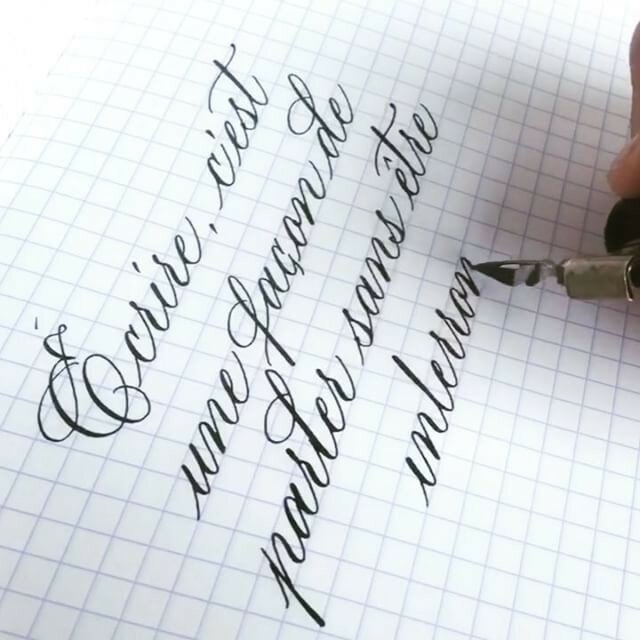 Écrire, c'est
une façon de
parler sans être
interron